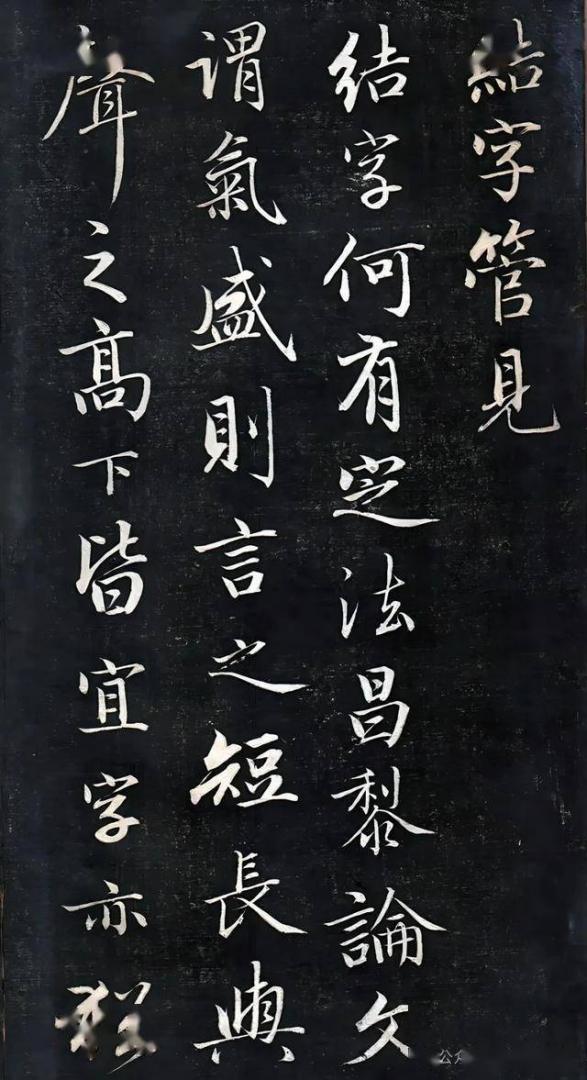 結字管見
結字何有定法昌黎論文
謂氣盛則言之短長與
聲之髙下皆宜字亦